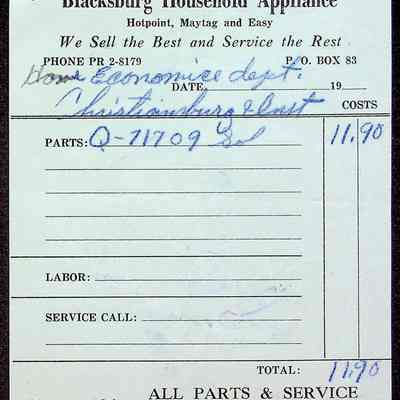 Blacksburg Household Appliance
Hotpoint, Maytag and Easy
We Sell the Best and Service the Rest
PHONE PR 2-8179 P. O. BOX 83
Home Economics dept.
DATE 19
Christiansburg COSTS
PARTS: Q-71709 11.90
LABOR:
SERVICE CALL:
TOTAL: 11.90
ALL PARTS & SERVICE